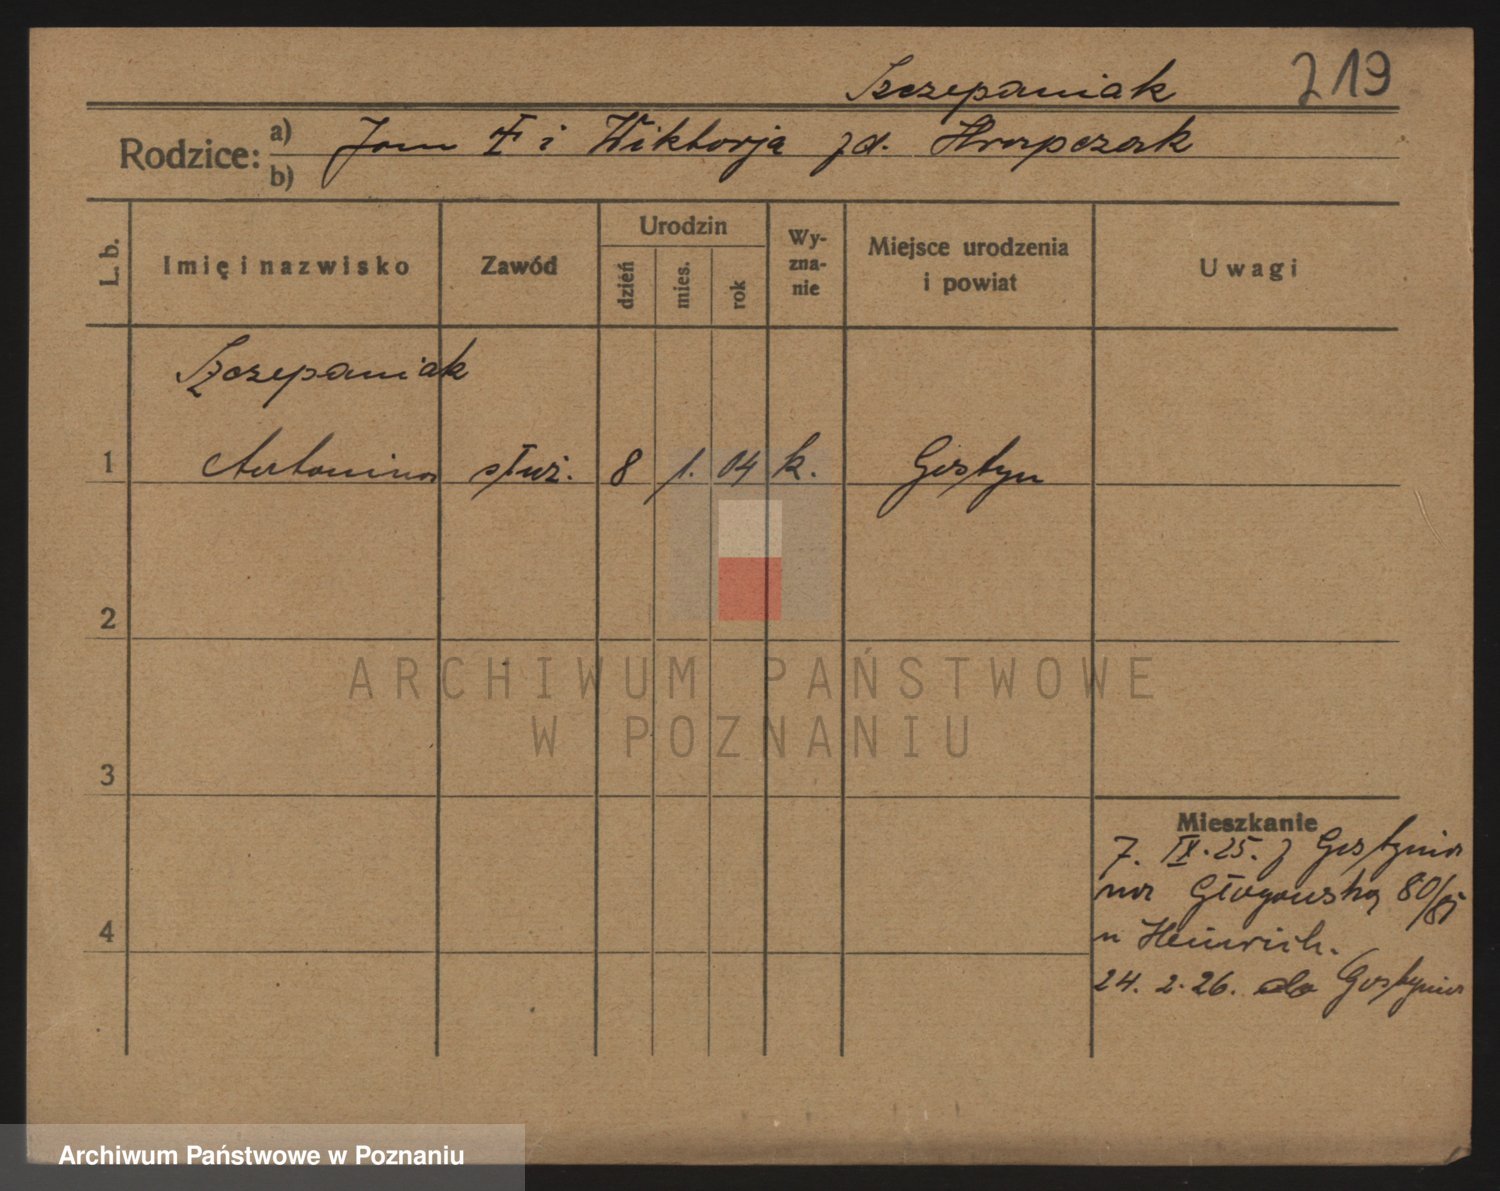 Szczepaniak 219
Rodzice: a) Jan i Wiktorja zd. Hrapczak
b)
L. b. Imię i nazwisko Zawód Urodzin dzień mies. rok Wyznanie Miejsce urodzenia i powiat Uwagi
Szczepaniak
1 Antonina służ. 8 1. 04 k. Gostyn
2
3
Mieszkanie
7. IX. 25. z Gostynia
na Głogowską 80/81
4
u Heinrich.
24. 2. 26. do Gostynia
ARCHIWUM PAŃSTWOWE
W POZNANIU
Archiwum Państwowe w Poznaniu